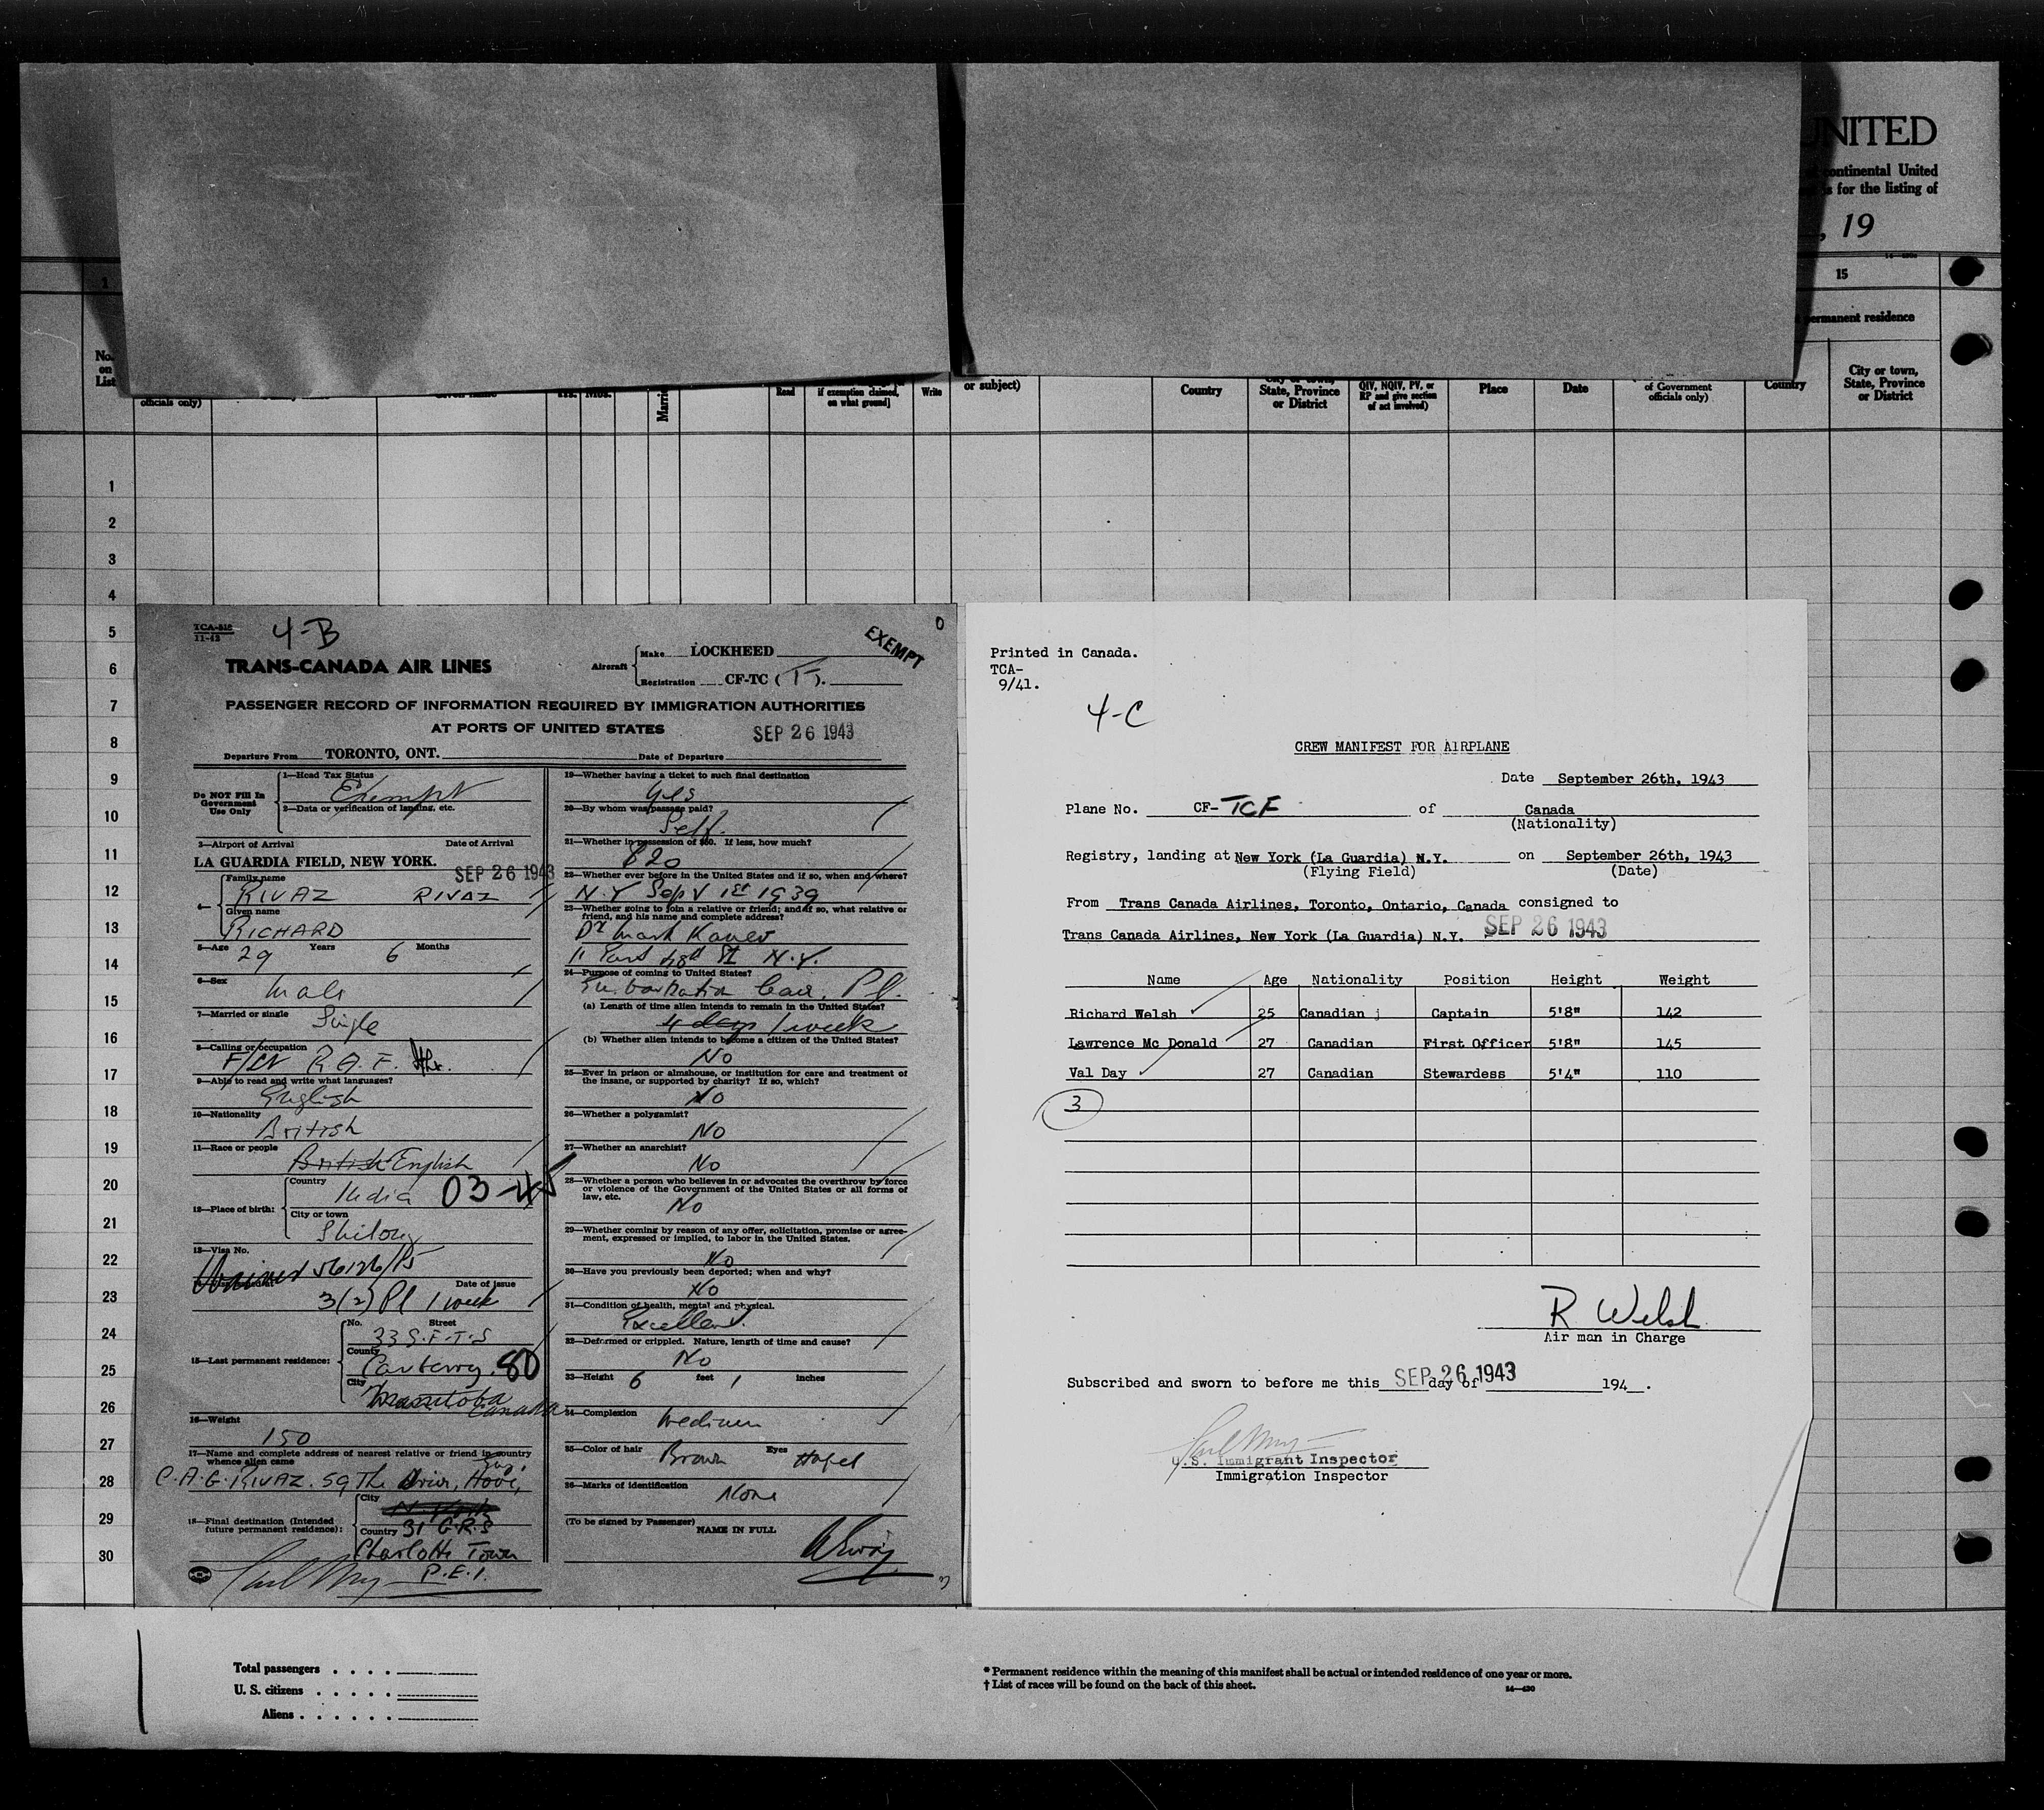 UNITED
continental United
is for the listing of
, 19
1
15
permanent residence
No.
on
List
officials only)
Read
if exemption claimed,
on what ground]
Write
or subject)
Country
State, Province
or District
QIV, NQIV, PV, or
RP and give section
of act involved)
Place
Date
of Government
officials only)
Country
City or town,
State, Province
or District
1
2
3
4
5
6
7
8
9
10
11
12
13
14
15
16
17
18
19
20
21
22
23
24
25
26
27
28
29
30
TCA-518
11-42
4-B
0
EXEMPT
TRANS-CANADA AIR LINES
Aircraft
Make LOCKHEED
Registration CF-TC ( T ).
PASSENGER RECORD OF INFORMATION REQUIRED BY IMMIGRATION AUTHORITIES
AT PORTS OF UNITED STATES
SEP 26 1943
Departure From TORONTO, ONT. Date of Departure
Do NOT Fill In
Government
Use Only
1—Head Tax Status
Exempt
2—Data or verification of landing, etc.
3—Airport of Arrival Date of Arrival
LA GUARDIA FIELD, NEW YORK. SEP 26 1943
4— Family name
RIVAZ RIVAZ
Given name
RICHARD
5—Age Years Months
29 6
6—Sex
Male
7—Married or single
Single
8—Calling or occupation
F/Lt R.A.F.
9—Able to read and write what languages?
English
10—Nationality
British
11—Race or people
British English
12—Place of birth:
Country
India 03-45
City or town
Shilong
13—Visa No.
56126/15
Date of issue
3(2) Pl 1 week
15—Last permanent residence:
No. Street
33 S.F.T.S
County
Carberry. 80
City
Manitoba
Canada
16—Weight
150
17—Name and complete address of nearest relative or friend in country
whence alien came
C.A.G. RIVAZ. 59 The Drive, Hove,
Eng.
18—Final destination (Intended
future permanent residence):
City
Country 31 G.R.S
Charlotte Town
P.E.I.
19—Whether having a ticket to such final destination
Yes
20—By whom was passage paid?
Self.
21—Whether in possession of $50. If less, how much?
$20
22—Whether ever before in the United States and if so, when and where?
N.Y Sept 1st 1939
23—Whether going to join a relative or friend; and if so, what relative or
friend, and his name and complete address?
Dr Mark
11 East 48th St N.Y.
24—Purpose of coming to United States?
(a) Length of time alien intends to remain in the United States?
4 days 1 week
(b) Whether alien intends to become a citizen of the United States?
No
25—Ever in prison or almshouse, or institution for care and treatment of
the insane, or supported by charity? If so, which?
No
26—Whether a polygamist?
No
27—Whether an anarchist?
No
28—Whether a person who believes in or advocates the overthrow by force
or violence of the Government of the United States or all forms of
law, etc.
No
29—Whether coming by reason of any offer, solicitation, promise or agree-
ment, expressed or implied, to labor in the United States.
No
30—Have you previously been deported; when and why?
No
31—Condition of health, mental and physical.
Excellent.
32—Deformed or crippled. Nature, length of time and cause?
No
33—Height 6 feet 1 inches
34—Complexion Medium
35—Color of hair Brown Eyes Hazel
36—Marks of identification None
(To be signed by Passenger) NAME IN FULL
Printed in Canada.
TCA-
9/41.
4-C
CREW MANIFEST FOR AIRPLANE
Date September 26th, 1943
Plane No. CF-TCF of Canada
(Nationality)
Registry, landing at New York (La Guardia) N.Y. on September 26th, 1943
(Flying Field) (Date)
From Trans Canada Airlines, Toronto, Ontario, Canada consigned to
Trans Canada Airlines, New York (La Guardia) N.Y. SEP 26 1943
Name Age Nationality Position Height Weight
Richard Welsh 25 Canadian Captain 5'8" 142
Lawrence Mc Donald 27 Canadian First Officer 5'8" 145
Val Day 27 Canadian Stewardess 5'4" 110
3
R Welsh
Air man in Charge
Subscribed and sworn to before me this SEP 26 1943 day of 194 .
U.S. Immigrant Inspector
Immigration Inspector
Total passengers . . . .
U. S. citizens . . . . .
Aliens . . . . . .
* Permanent residence within the meaning of this manifest shall be actual or intended residence of one year or more.
† List of races will be found on the back of this sheet.